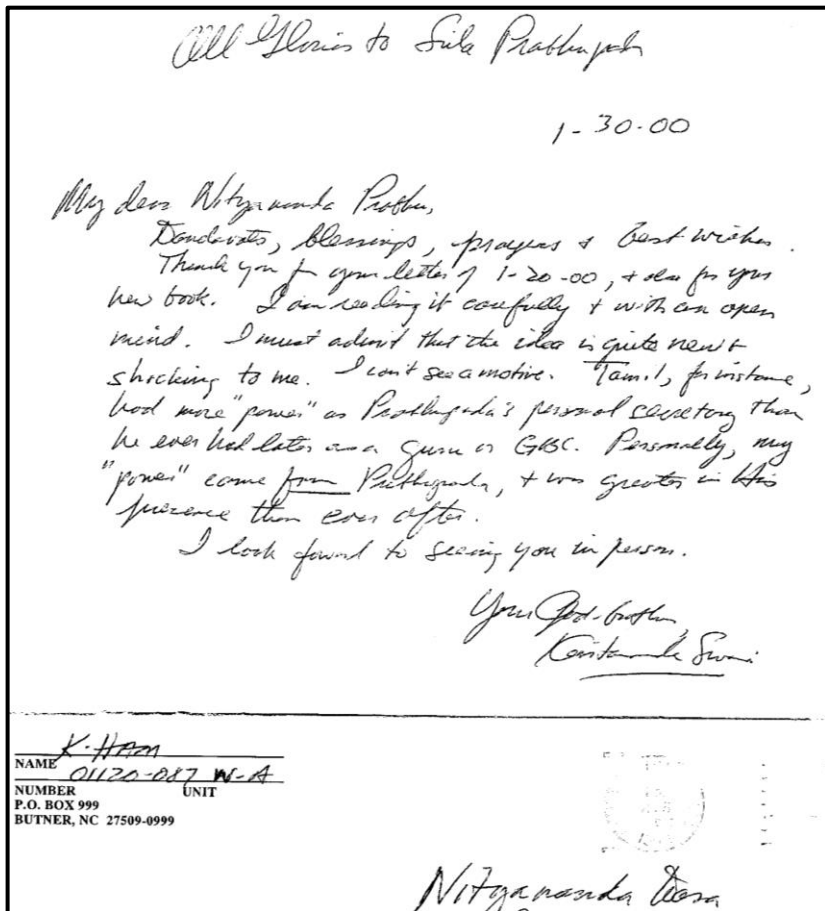 All Glories to Srila Prabhupada
1-30-00
My dear Nityananda Prabhu,
Dandavats, blessings, prayers & best wishes.
Thank you for your letter of 1-20-00, & also for your
new book. I am reading it carefully & with an open
mind. I must admit that the idea is quite new &
shocking to me. I can't see a motive. Tamal, for instance,
had more "power" as Prabhupada's personal secretary than
he ever had later as a guru or GBC. Personally, my
"power" came from Prabhupada, & was greater in His
presence than ever after.
I look forward to seeing you in person.
Your God-brother,
Kirtanananda Swami
K. HAM
NAME
01120-087 W-A
NUMBER UNIT
P.O. BOX 999
BUTNER, NC 27509-0999
Nityananda Dasa